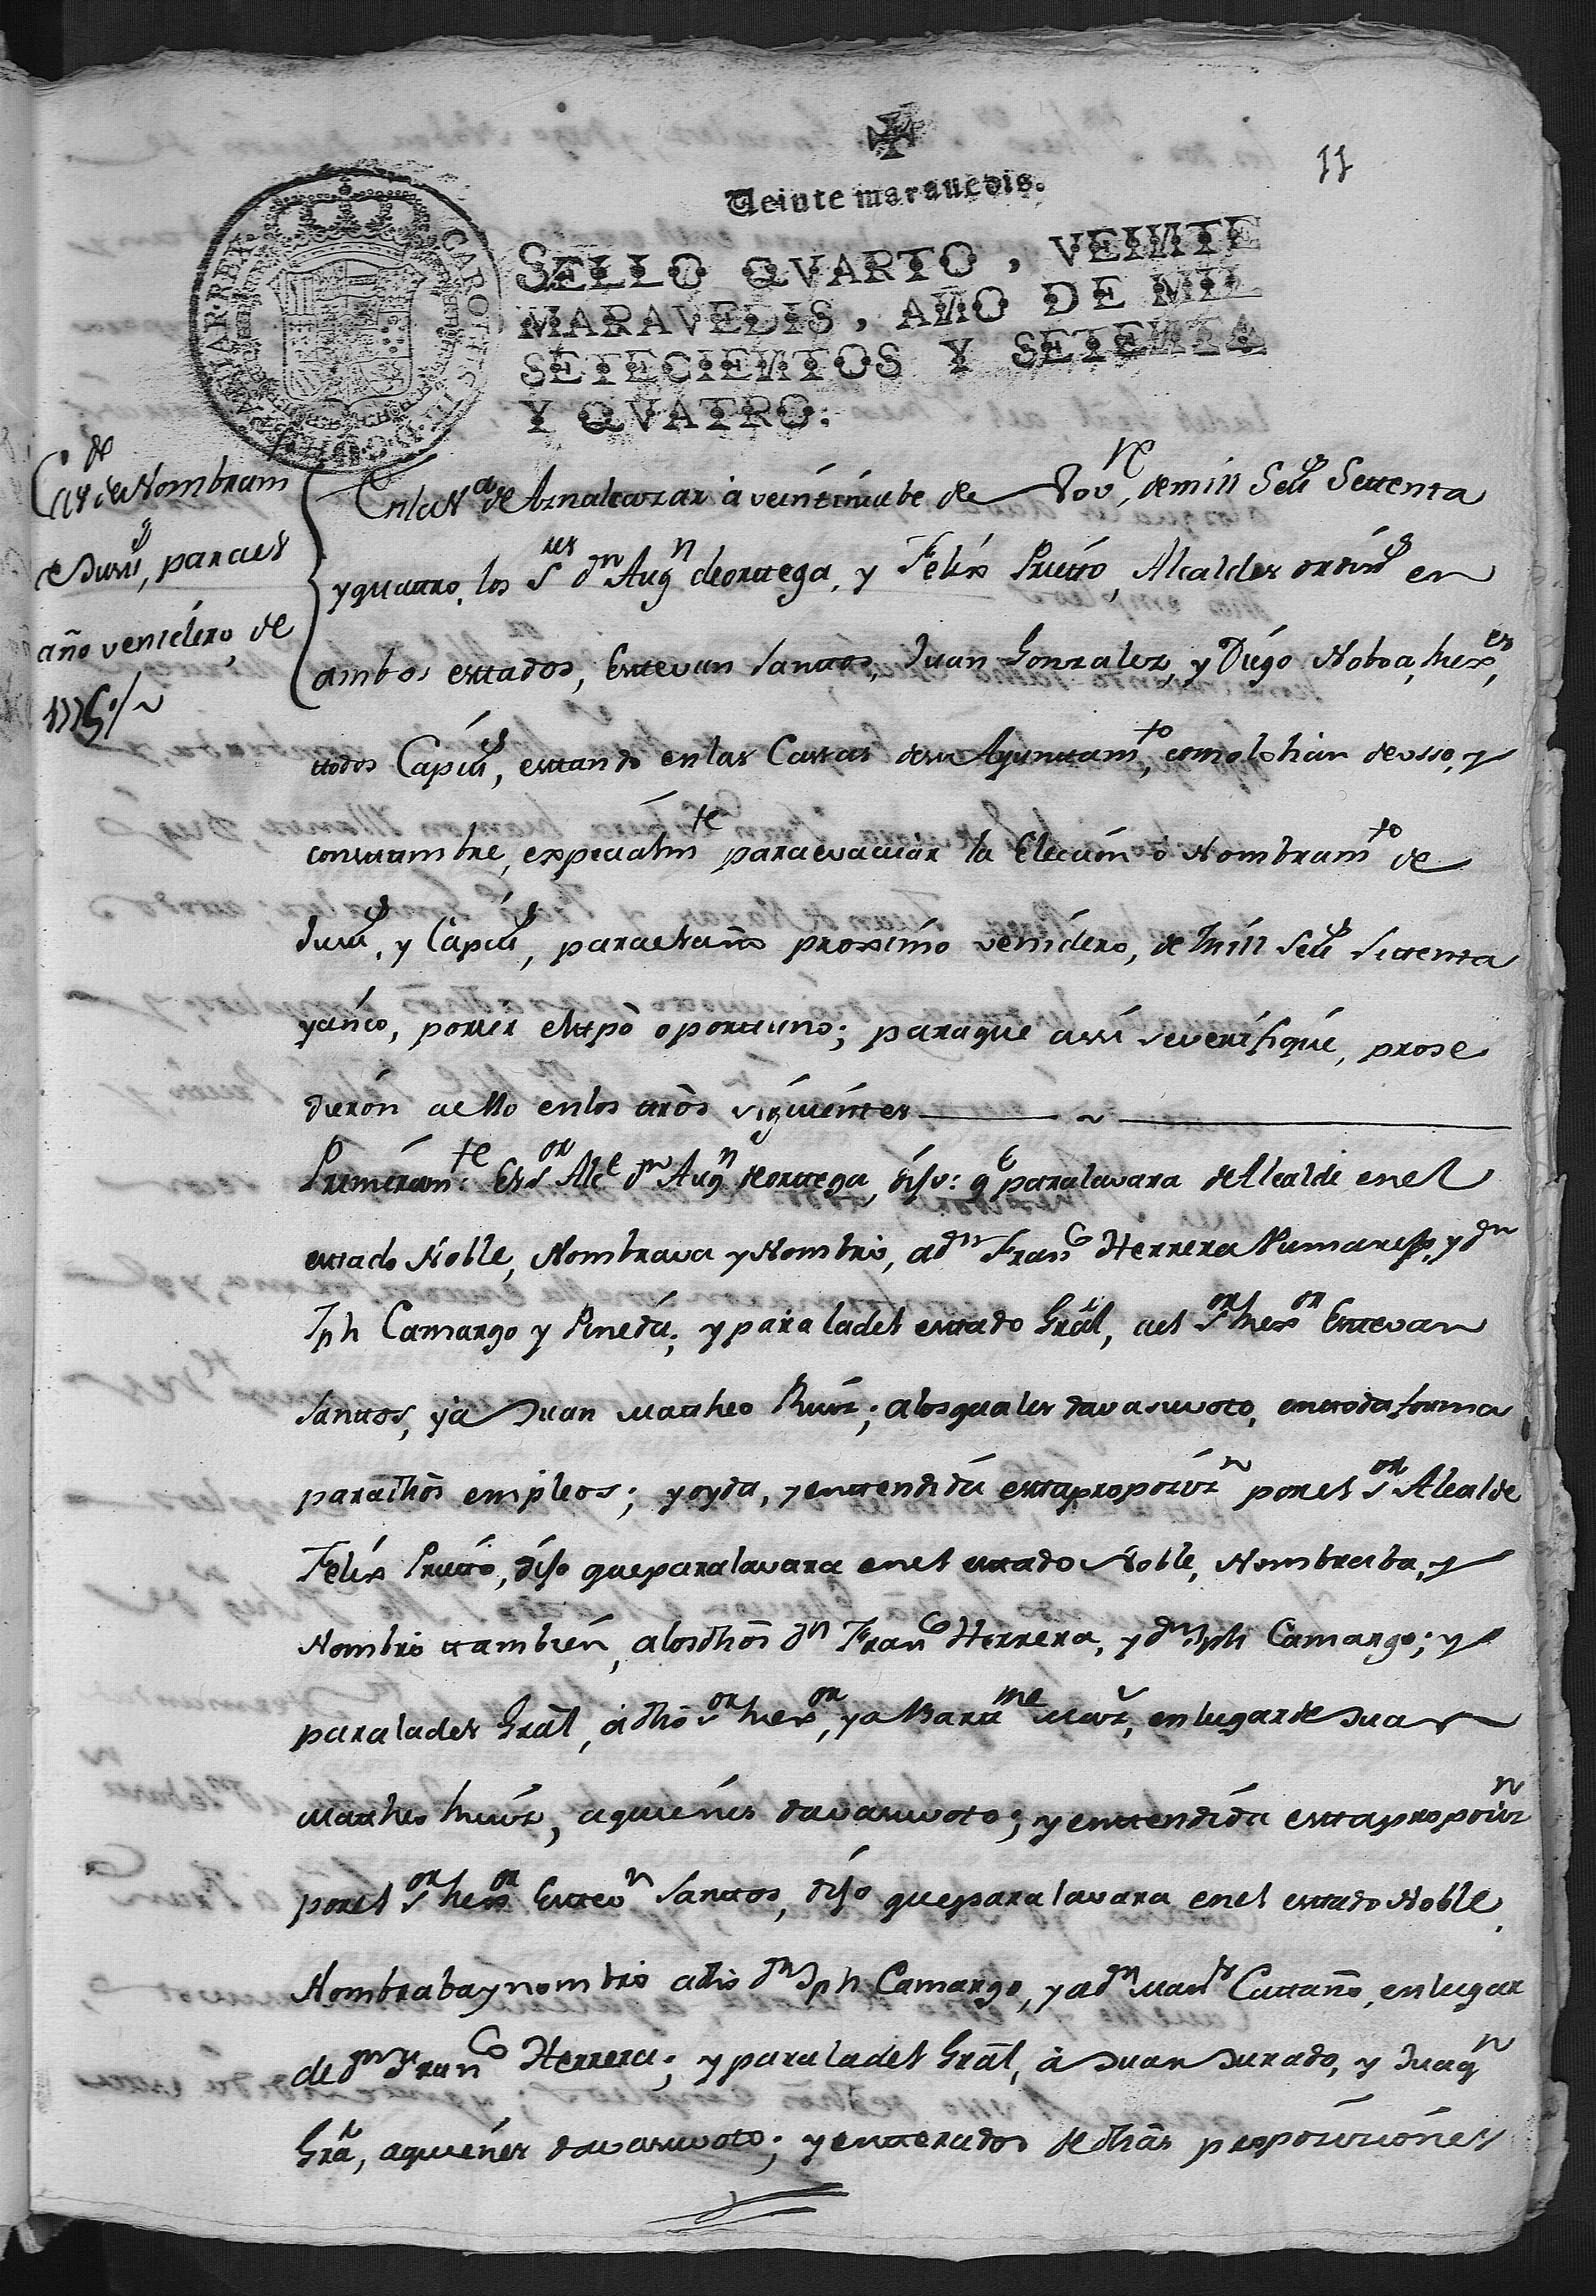 11
Veinte marauedis.
SELLO QVARTO, VEINTE
MARAVEDIS, AÑO DE MIL
SETECIENTOS Y SETENTA
Y QVATRO.
de Nombram
para el
año venidero, de
1775
En la Va de Aznalcazar à veintinuebe de Nove, de mill Sets Settenta
y quattro, los Sres dn Augn de orttega, y Felix Prietto, Alcaldes ordins en
ambos esttados, Esttevan Santtos, Juan Gonzalez, y Diego Noboa, Rexes,
ttodos Capits, esttando en las Cassas de su Ayunttamto, como lo hàn de usso, y
costtumbre, expecialmte para evacuar la Elección ò Nombramto de
Justs, y Capits, para el año proximo venidero, de Mill Sets Settenta
y cinco, por ser el ttpò oporttuno; para que assi se verifique, prose
dieròn a ello en los ttròs siguientes
Primeramte: El Sor Alce dn Augn de orttega, dijo: qe para la vara de Alcalde en el
esttado Noble, Nombrava y Nombrò, a dn Franco Herrera y dn
Jph Camargo y Pineda; y para la del esttado Gràl, al Sor Rexor Esttevan
Santtos, y à Juan Mattheo Ruiz; a los quales dava su voto, en ttoda forma
para dhòs empleos; y oyda, y enttendida estta proposizn por el Sor Alcalde
Felix Prietto, dijo que para la vara en el esttado Noble, Nombraba, y
Nombrò ttambien, a los dhòs dn Franco Herrera, y dn Jph Camargo; y
para la del Gràl, à dhò Sor Rexor, y a Barme en lugar de Juan
Mattheo Ruiz, a quiénes dava su voto; y enttendida estta proposizn
por el Sor Rexor Esttevn Santtos, dijo que para la vara en el esttado Noble,
Nombraba y nombrò a dhò dn Jph Camargo, y a dn Cattaño, en lugar
de dn Franco Herrera; y para la del Gràl, à Juan Jurado, y Juaqn
Gra, a quiénes dava su voto; y entterados de dhàs proposiziònes